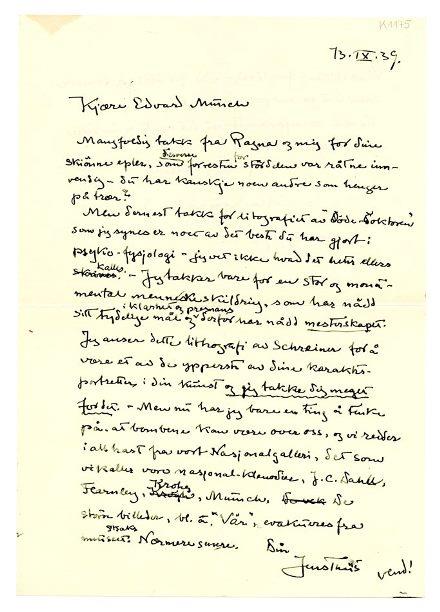 K1175
13. IX. 39.
Kjære Edvard Munch
Mangfoldig takk fra Ragna og mig for dine
skjønne epler, som desverre forresten for størsdelen var råtne inn-
vendig – du har kanskje noen andre som henger
på trær?
Men dernest takk for litografiet av "Döde-Doktoren"
som jeg synes er noe av det beste du har gjort i
psyko-fysiologi – jeg vet ikke hvad det heter ellers
kalles. – Jeg takker bare for en stor og monu-
mental menneskeskildring, som har nådd
sitt tydelige mål i klarhet og prægnans og derfor har nådd mesterskapet.
Jeg anser dette lithografi av Schreiner for å
være et av de ypperste av dine karakter-
portretter i din kunst og jeg takker dig meget
for det. – Men nu har jeg bare en ting å tenke
på, at bombene kan være over oss, og vi redder
i all hast fra vort Nasjonalgalleri, det som
vi kaller vore nasjonal-klenodier, J.C. Dahl,
Fearnley, Krohg, Munch. De
store billeder, bl. a. "Vår", evakueres fra
museet straks. Nærmere senere. Din
Jens Thiis
vend!